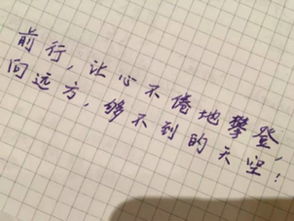 前行，让心不倦地攀登，
向远方，够不到的天空！